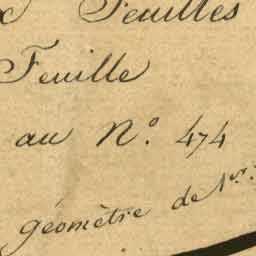 Feuilles
Feuille
au N.° 474
géomètre de 1re